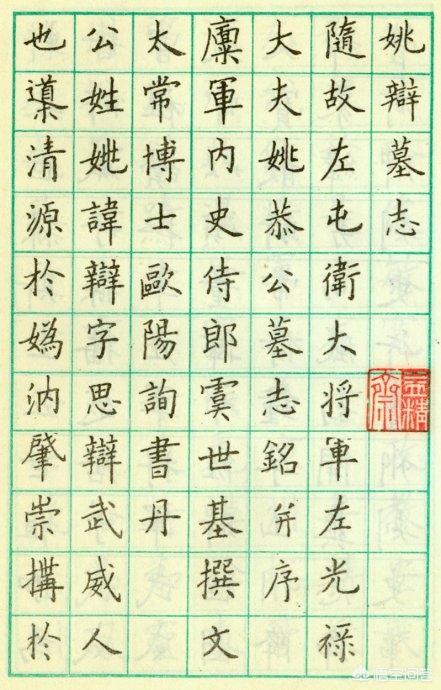 姚辯墓志
隨故左屯衛大将軍左光禄
大夫姚恭公墓志銘并序
廩軍内史侍郎虞世基撰文
太常博士歐陽詢書丹
公姓姚諱辯字思辯武威人
也導清源於嬀汭肇崇搆於
悟空问答